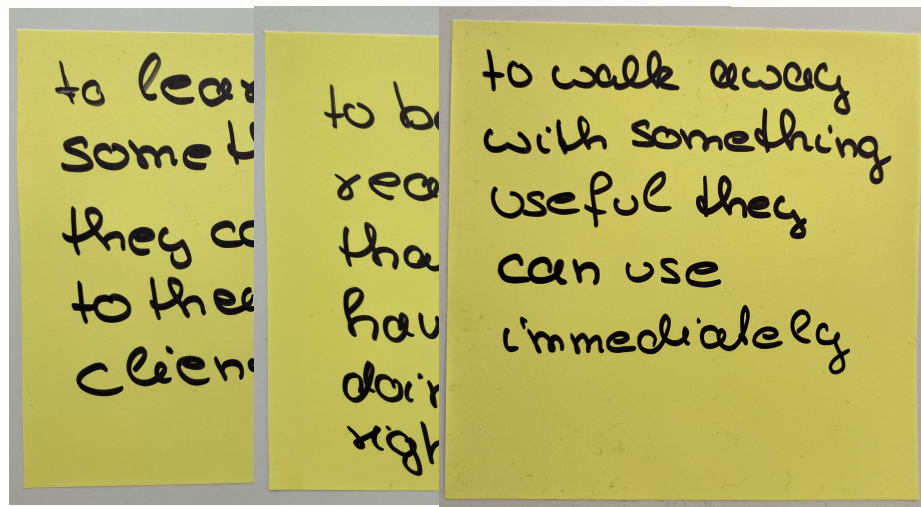 to lear
somet
they ca
to thei
clien
to b
rea
tha
hav
doin
righ
to walk away
with something
useful they
can use
immediately